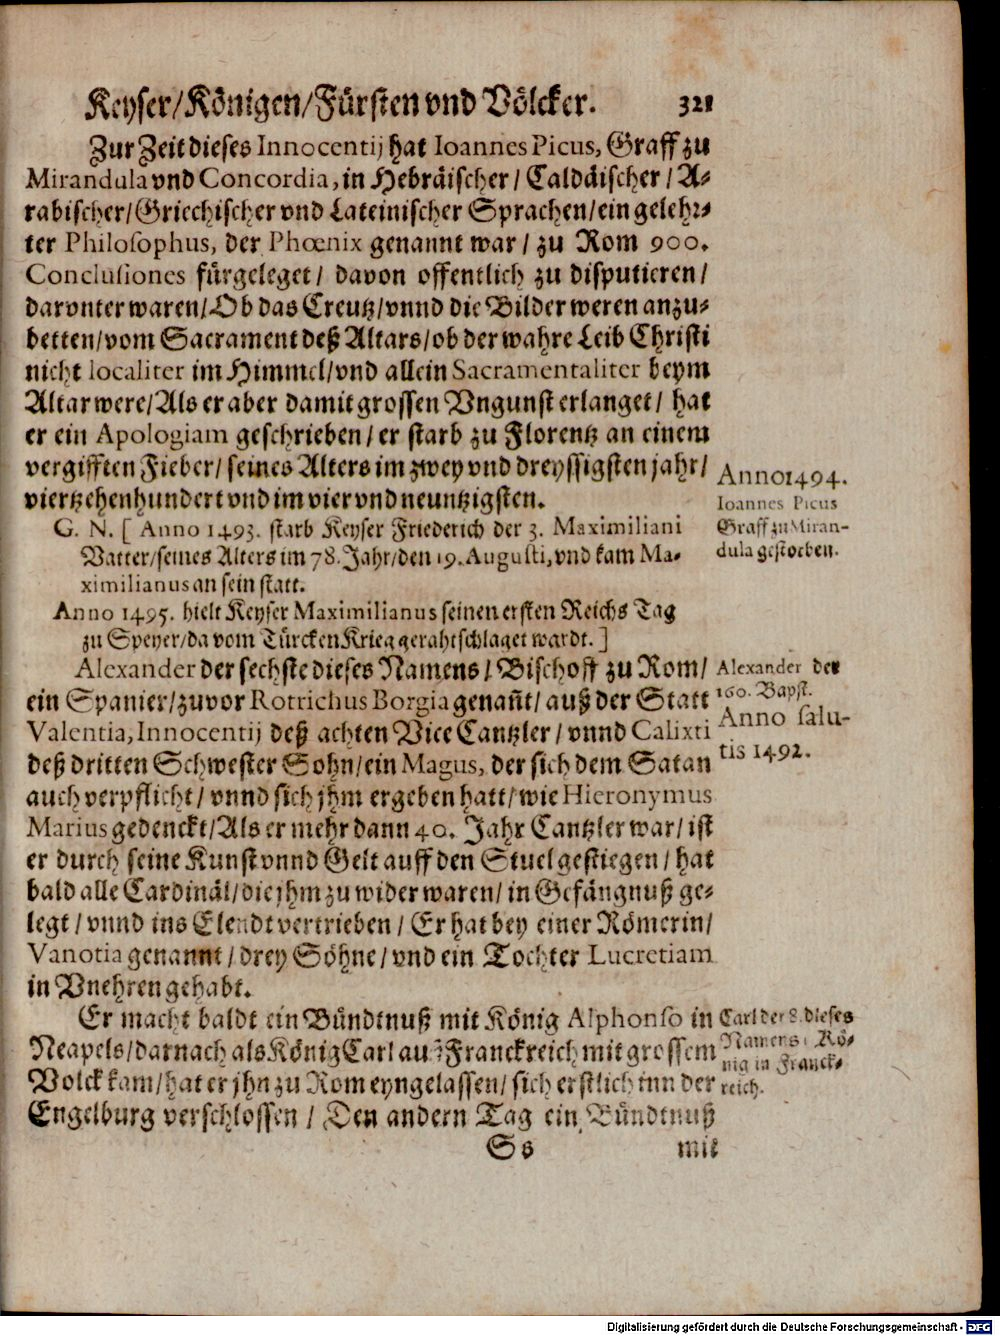 Keyser/Königen/Fürsten vnd Völcker. 321
Zur Zeit dieses Innocentij hat Ioannes Picus, Graff zu
Mirandula vnd Concordia, in Hebräischer/ Caldäischer/ A-
rabischer/Griechischer vnd Lateinischer Sprachen/ein gelehr-
ter Philosophus, der Phœnix genannt war/ zu Rom 900.
Conclusiones fürgeleget/ davon offentlich zu disputieren/
darvnter waren/Ob das Creutz/vnnd die Bilder weren anzu-
betten/vom Sacrament deß Altars/ob der wahre Leib Christi
nicht localiter im Himmel/vnd allein Sacramentaliter beym
Altar were/Als er aber damit grossen Vngunst erlanget/ hat
er ein Apologiam geschrieben/er starb zu Florentz an einem
vergifften Fieber/seines Alters im zwey vnd dreyssigsten jahr/
viertzehenhundert vnd im vier vnd neuntzigsten.
Anno 1494.
Ioannes Picus
Graff zu Miran-
dula gestorben.
G. N. [ Anno 1493. starb Keyser Friederich der 3. Maximiliani
Vatter/seines Alters im 78. Jahr/den 19. Augusti, vnd kam Ma-
ximilianus an sein statt.
Anno 1495. hielt Keyser Maximilianus seinen ersten Reichs Tag
zu Speyer/da vom Türcken Krieg gerahtschlaget wardt. ]
Alexander der sechste dieses Namens/ Bischoff zu Rom/
ein Spanier/zuvor Rotrichus Borgia genañt/ auß der Statt
Valentia, Innocentij deß achten Vice Cantzler/ vnnd Calixti
deß dritten Schwester Sohn/ein Magus, der sich dem Satan
auch verpflicht/ vnnd sich jhm ergeben hatt/wie Hieronymus
Marius gedenckt/Als er mehr dann 40. Jahr Cantzler war/ist
er durch seine Kunst vnnd Gelt auff den Stuel gestiegen/ hat
bald alle Cardinäl/die jhm zu wider waren/in Gefängnuß ge-
legt/vnnd ins Elendt vertrieben/ Er hat bey einer Römerin/
Vanotia genannt/drey Söhne/vnd ein Tochter Lucretiam
in Vnehren gehabt.
Alexander der
160. Bapst.
Anno salu-
tis 1492.
Er macht baldt ein Bündtnuß mit König Alphonso in
Neapels/darnach als König Carl auß Franckreich mit grossem
Volck kam/hat er jhn zu Rom eyngelassen/sich erstlich inn der
Engelburg verschlossen/ Den andern Tag ein Bündtnuß
Carl der 8. dieses
Namens/ Kö-
nig in Franck-
reich.
Ss mit
Digitalisierung gefördert durch die Deutsche Forschungsgemeinschaft - DFG